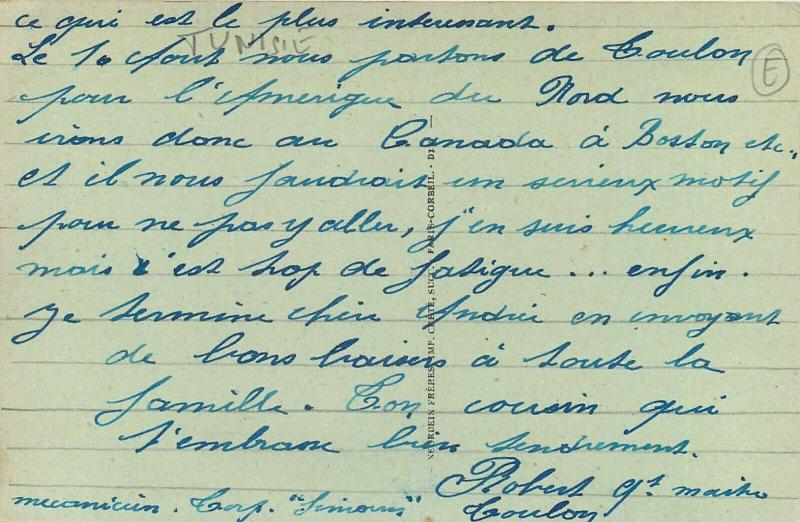 ce qui est le plus interessant.
TUNISIE
Le 10 Aout nous partons de Toulon
E
pour l'Amerique du Nord nous
irons donc au Canada à Boston etc.,
et il nous faudrait un serieux motif
pour ne pas y aller, j'en suis heureux
mais c'est trop de fatigue... enfin.
Je termine cher André en envoyant
de bons baisers à toute la
famille. Ton cousin qui
t'embrasse bien tendrement.
Robert qt maitre
mecanicien. Torp. "Simoun" Toulon
NEURDEIN FRÈRES IMP. CRÉTÉ, SUCC. PARIS-CORBEIL.